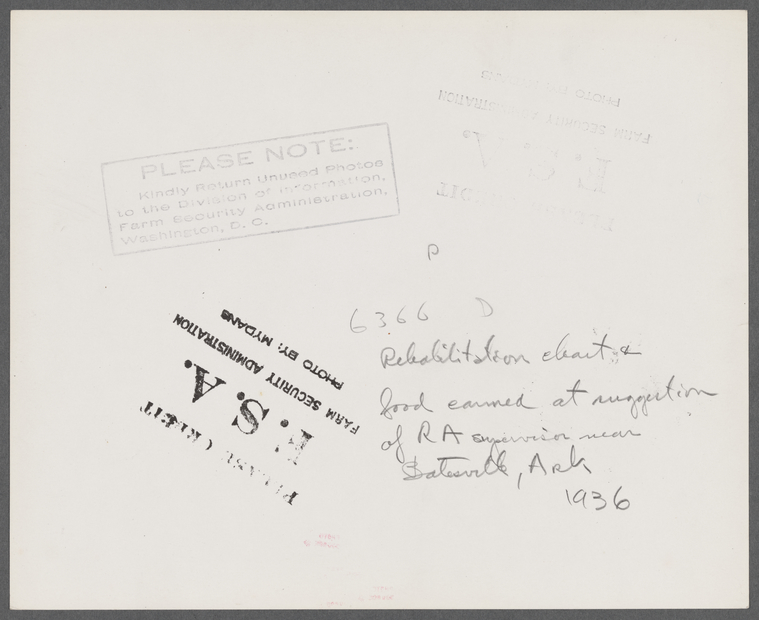 PLEASE NOTE:
Kindly Return Unused Photos
to the Division of Information,
Farm Security Administration,
Washington, D. C.
PHOTO
FARM SECURITY ADMINISTRATION
P
6366 D
Rehabilitation chart &
food canned at suggestion
of RA supervisor near
Batesville, Ark
1936
PLEASE CREDIT
F. S. A.
FARM SECURITY ADMINISTRATION
PHOTO BY: MYDANS